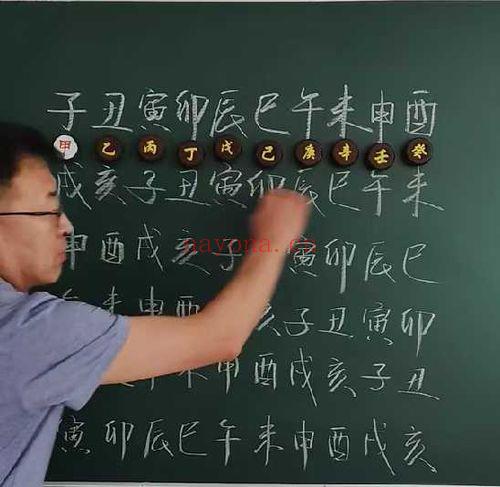 子丑寅卯辰巳午未申酉
甲乙丙丁戊己庚辛壬癸
戌亥子丑寅卯辰巳午未
申酉戌亥子寅卯辰巳
nayona.cn
未申酉亥子丑寅卯
申酉戌亥子丑
寅卯辰巳午未申酉戌亥